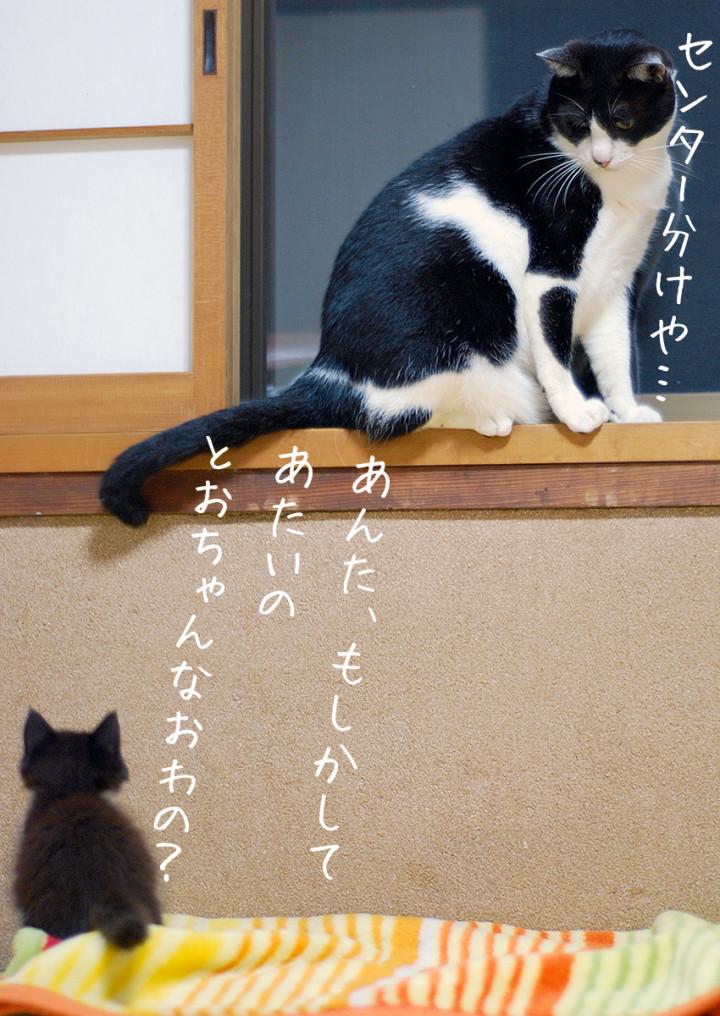 センター分けや…
あんた、もしかして
あたいの
とおちゃんなおわの？